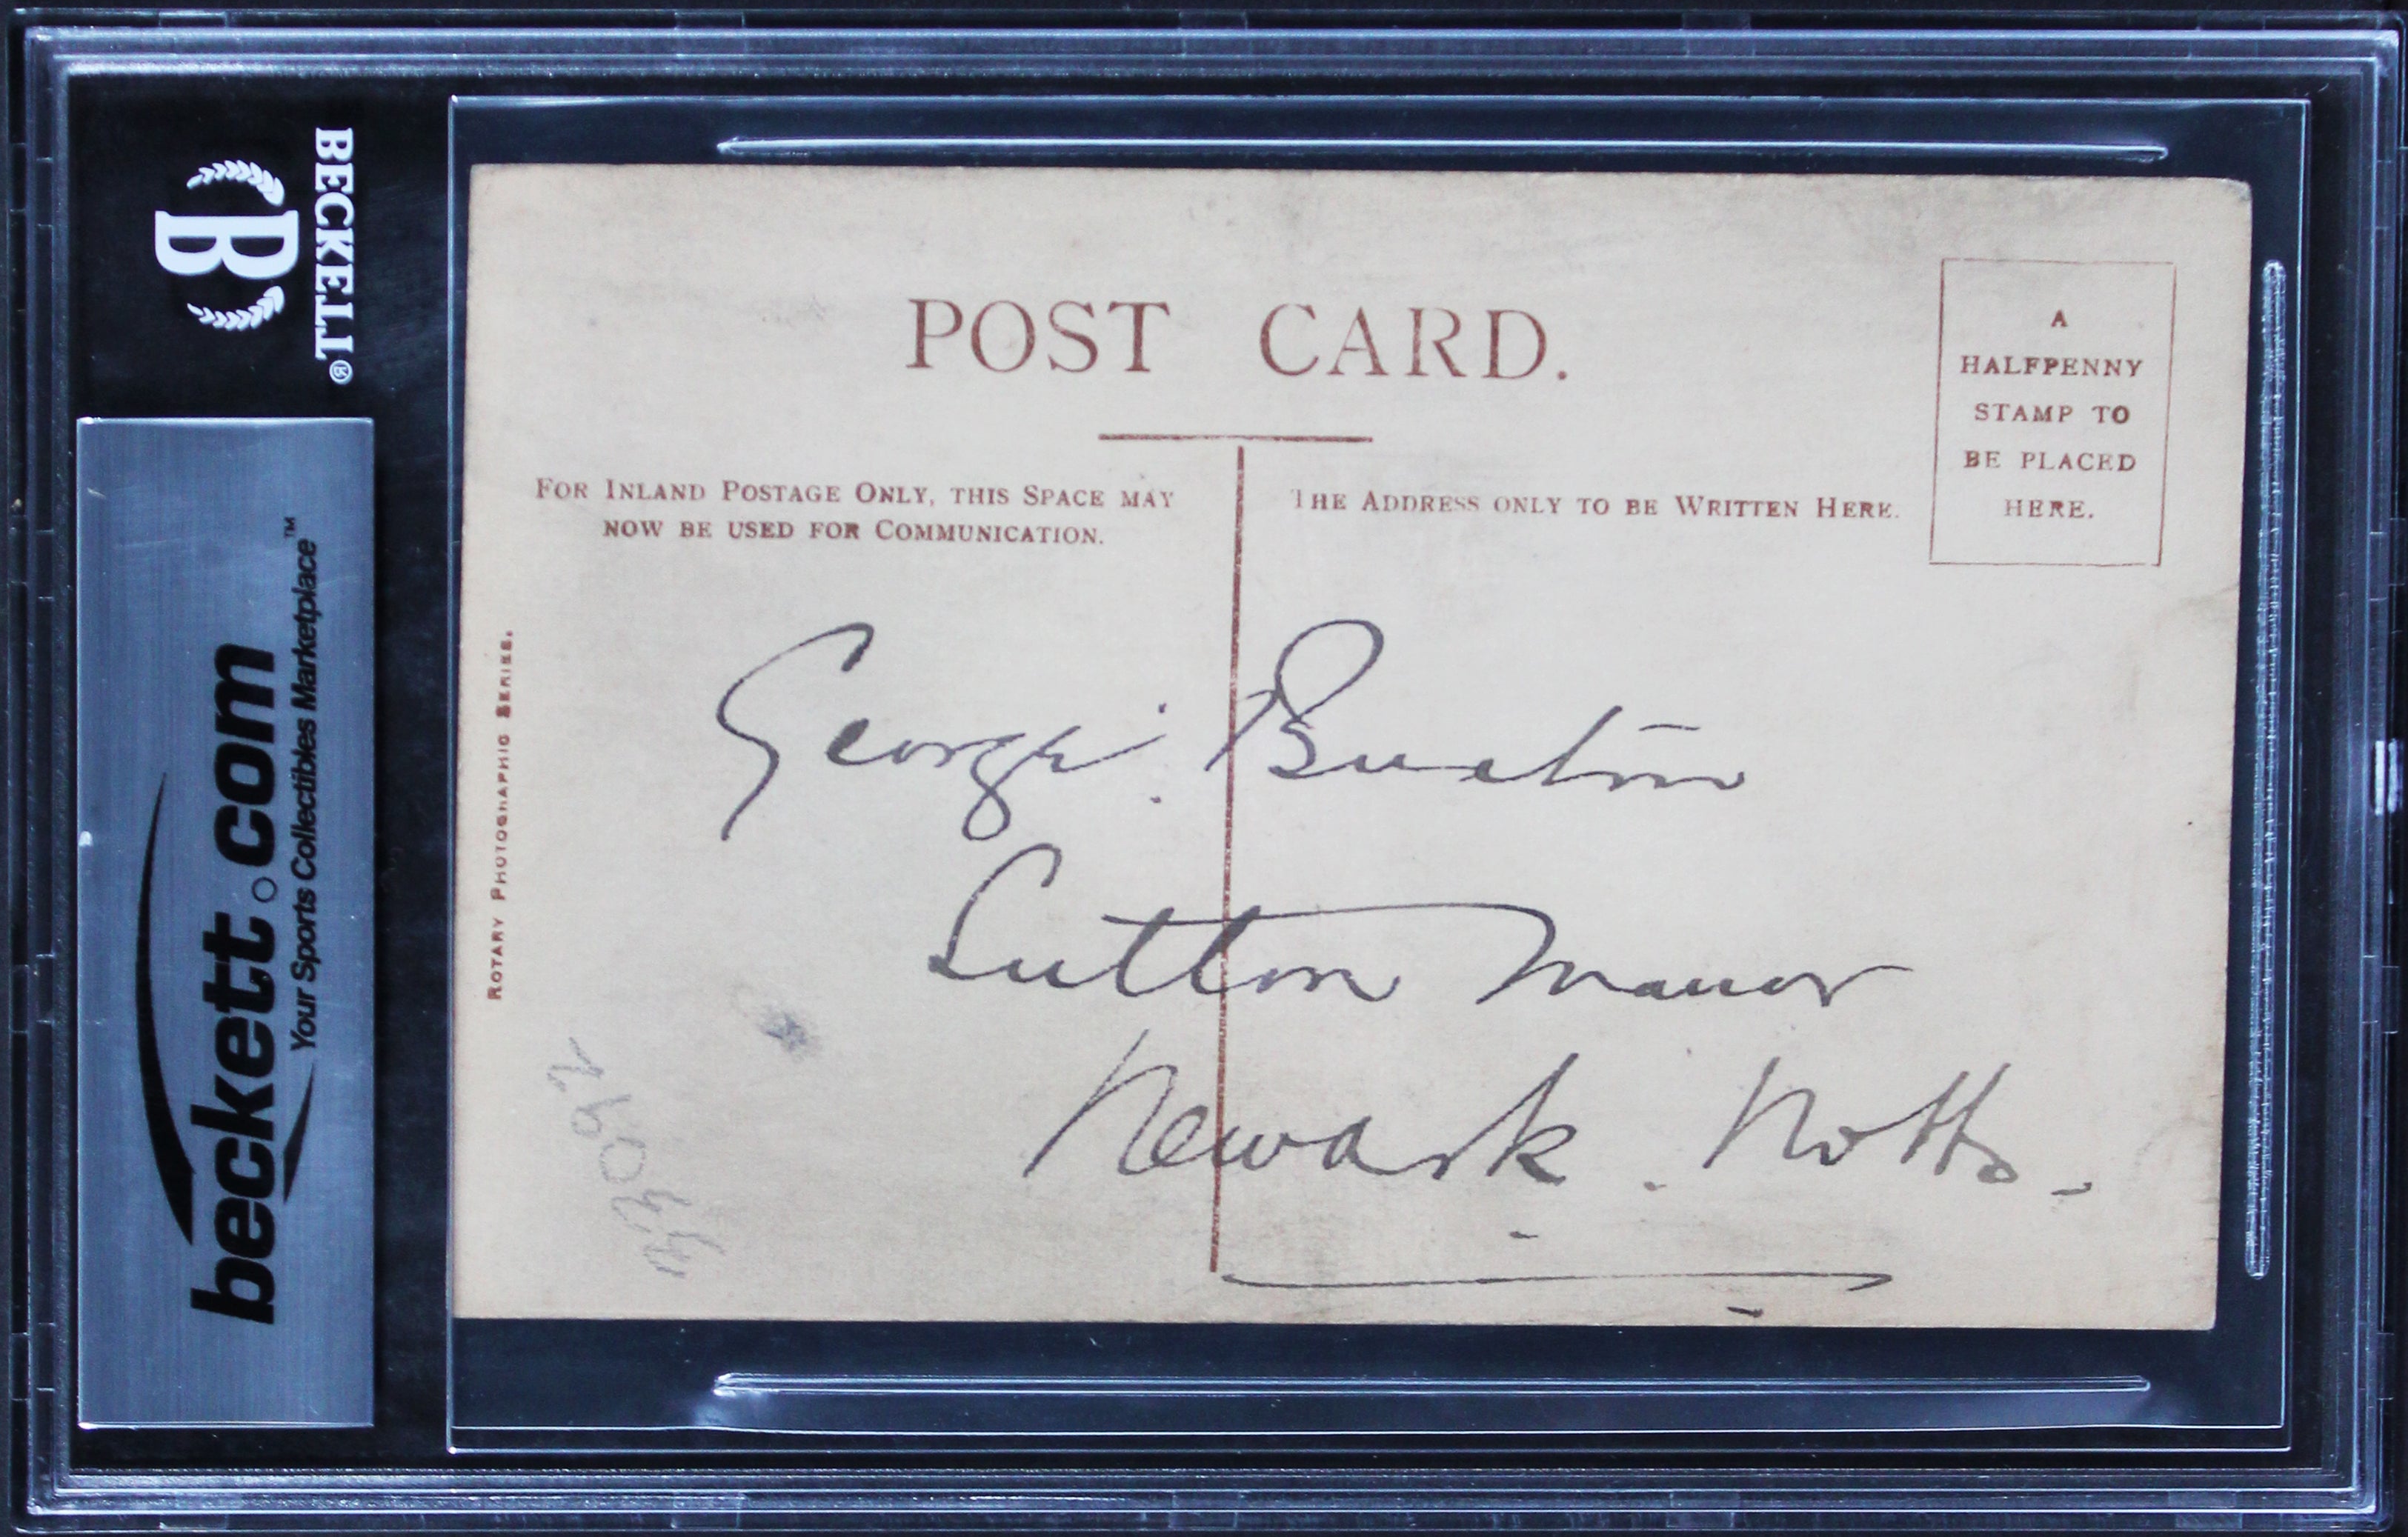 BECKETT®
B
beckett.com
Your Sports Collectibles Marketplace™
POST CARD.
A
HALFPENNY
STAMP TO
BE PLACED
HERE.
FOR INLAND POSTAGE ONLY, THIS SPACE MAY
NOW BE USED FOR COMMUNICATION.
THE ADDRESS ONLY TO BE WRITTEN HERE.
ROTARY PHOTOGRAPHIC SERIES.
George Buxton
Sutton Manor
Newark. Notts.